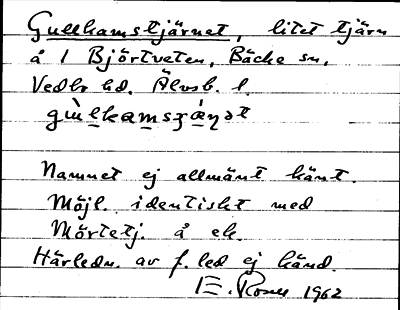 Gullkamstjärnet, litet tjärn
å 1 Björtveten, Bäcke sn,
Vedbo hd. Älvsb. l.
Namnet ej allmänt känt.
Möjl. identiskt med
Mörtetj. å ek.
Härledn. av f. led ej känd.
1962